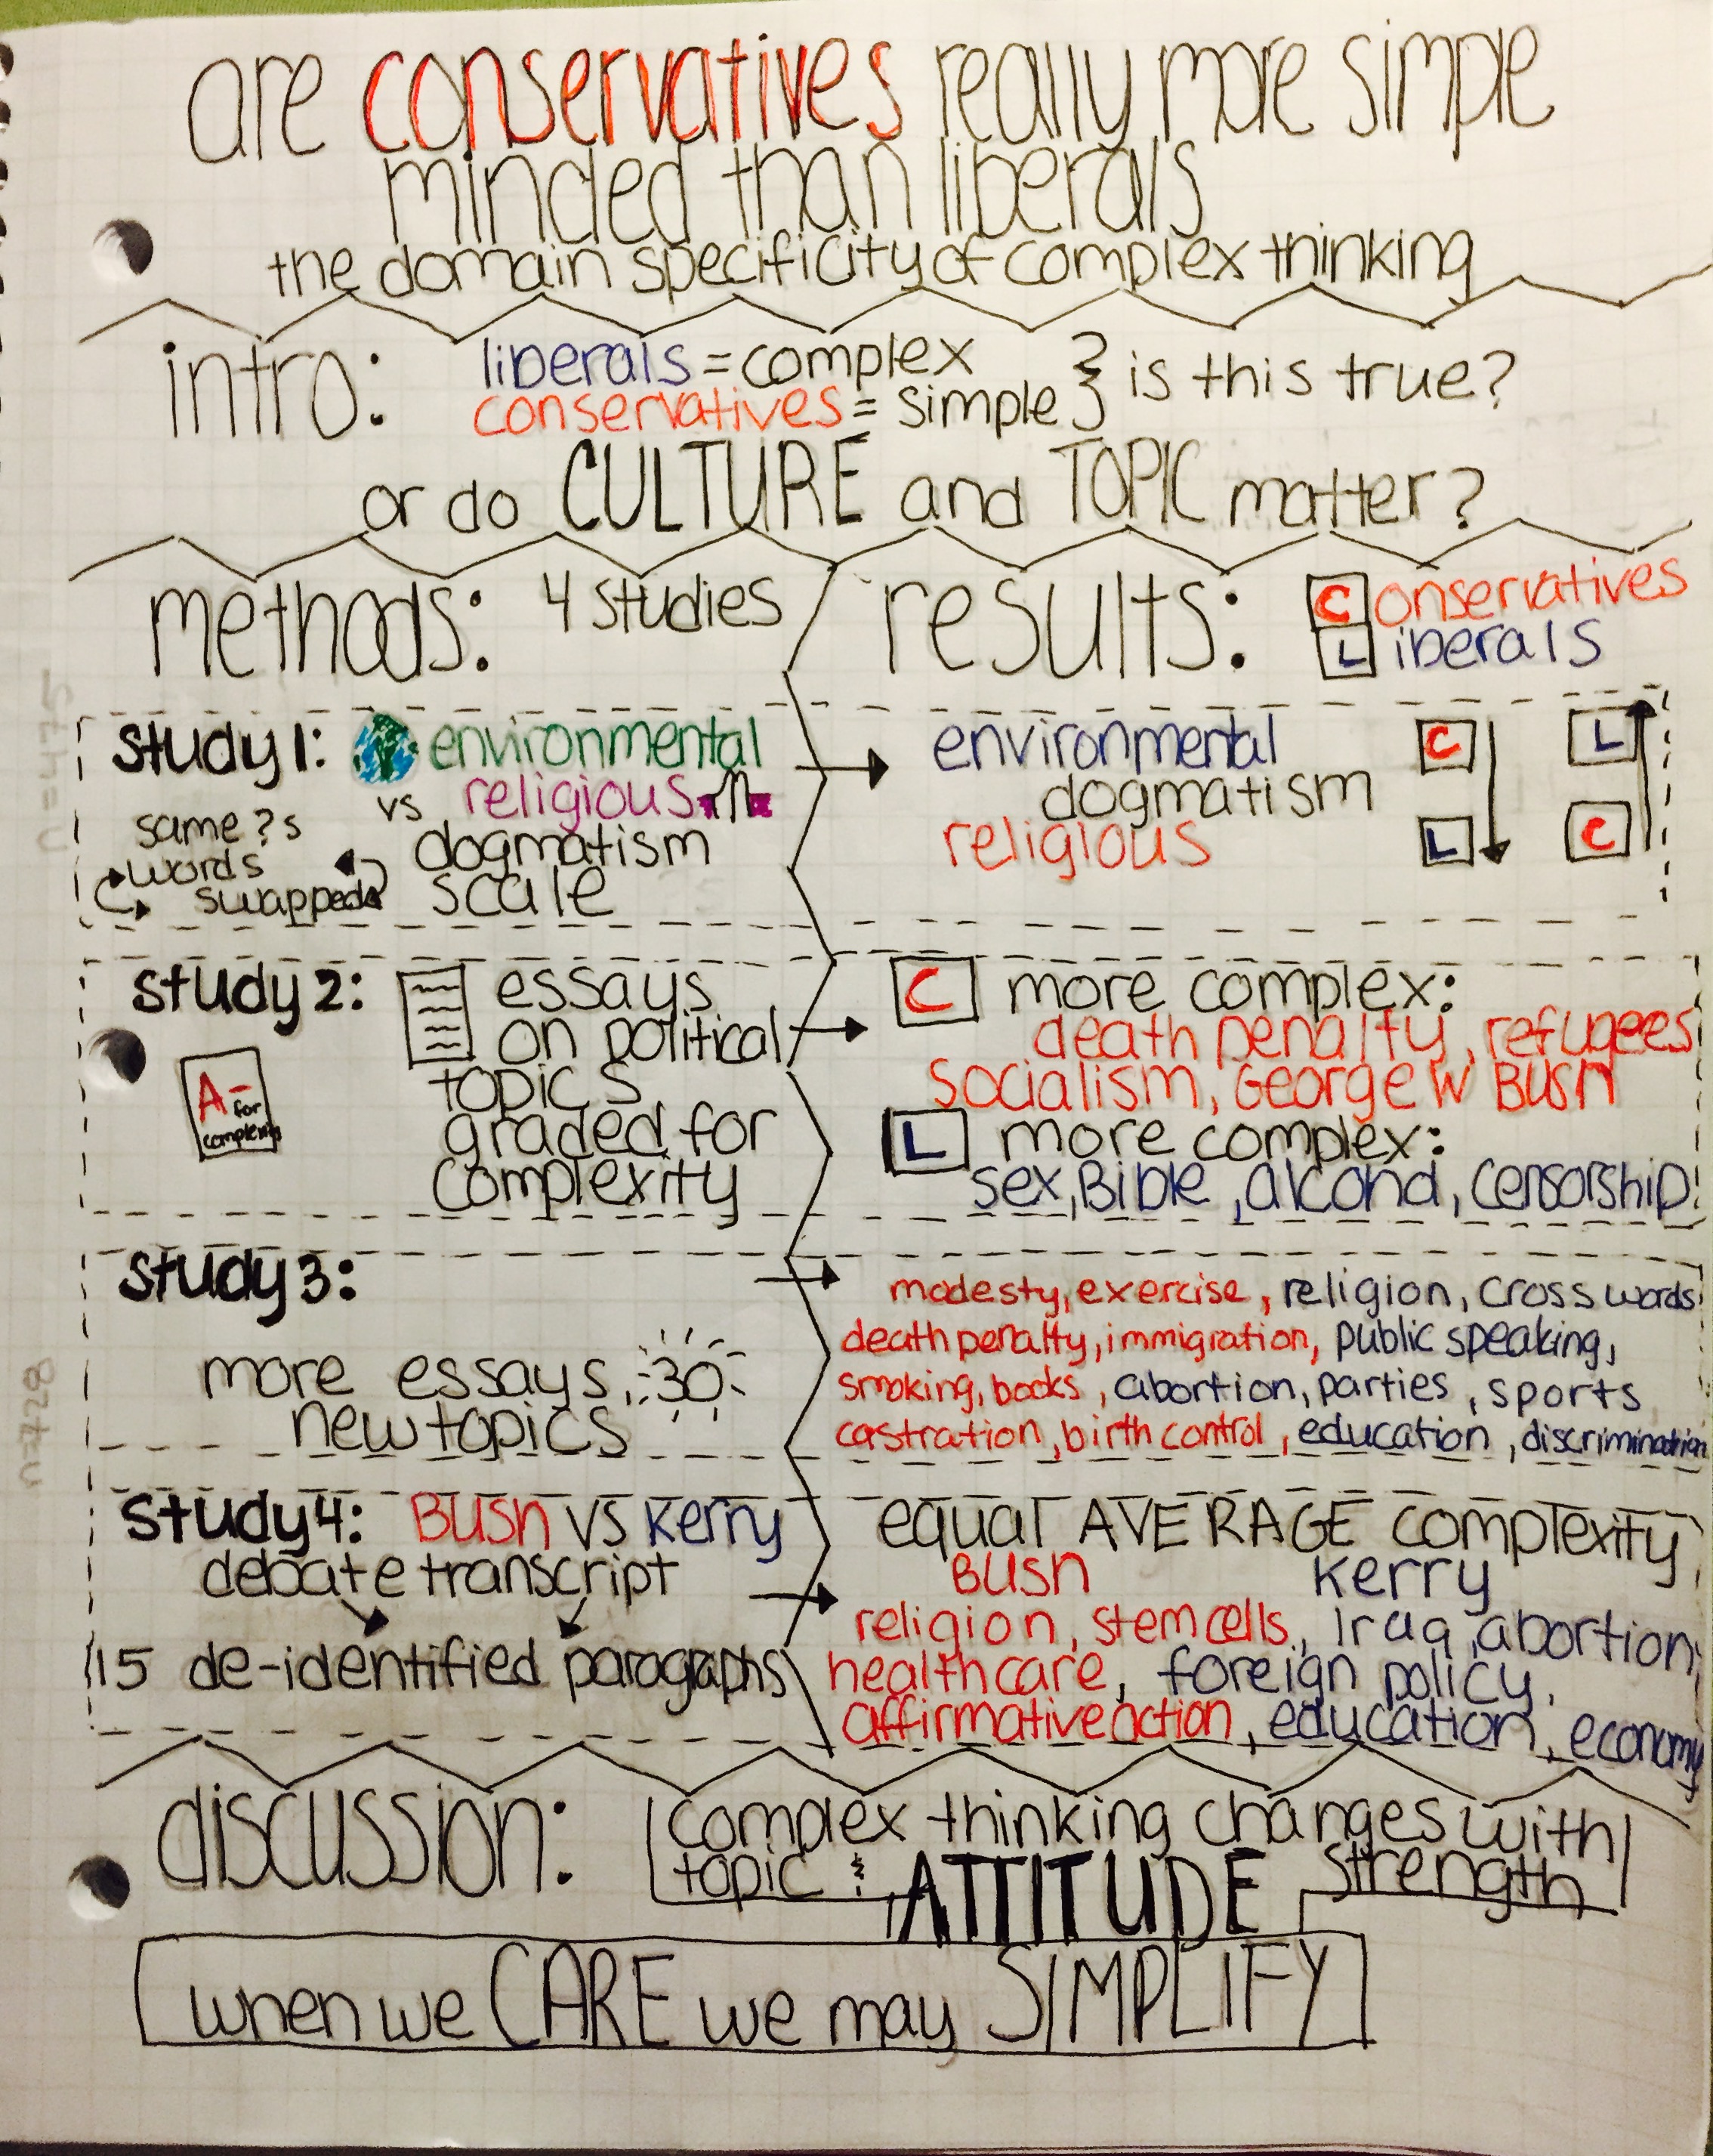 are conservatives really more simple
minded than liberals
the domain specificity of complex thinking
intro: liberals = complex } is this true?
conservatives = simple
or do CULTURE and TOPIC matter?
methods: 4 studies
results: Conservatives
Liberals
n=475
study 1: environmental
vs religious
dogmatism
scale
same ?s
words
swapped
environmental
dogmatism
religious
C L
L C
study 2: essays
on political
topics
graded for
complexity
A- for
complexity
C more complex:
death penalty, refugees
Socialism, George W Bush
L more complex:
sex, Bible, censorship
study 3:
more essays, 30
new topics
n=728
modesty, exercise, religion, crosswords
death penalty, immigration, public speaking,
smoking, books, abortion, parties, sports
castration, birth control, education, discrimination
study 4: Bush VS Kerry
debate transcript
115 de-identified paragraphs
equal AVERAGE complexity
Bush Kerry
religion, stem cells, Iraq, abortion,
healthcare, foreign policy,
affirmative action, education, economy
discussion: complex thinking changes with
topic & ATTITUDE strength
when we CARE we may SIMPLIFY